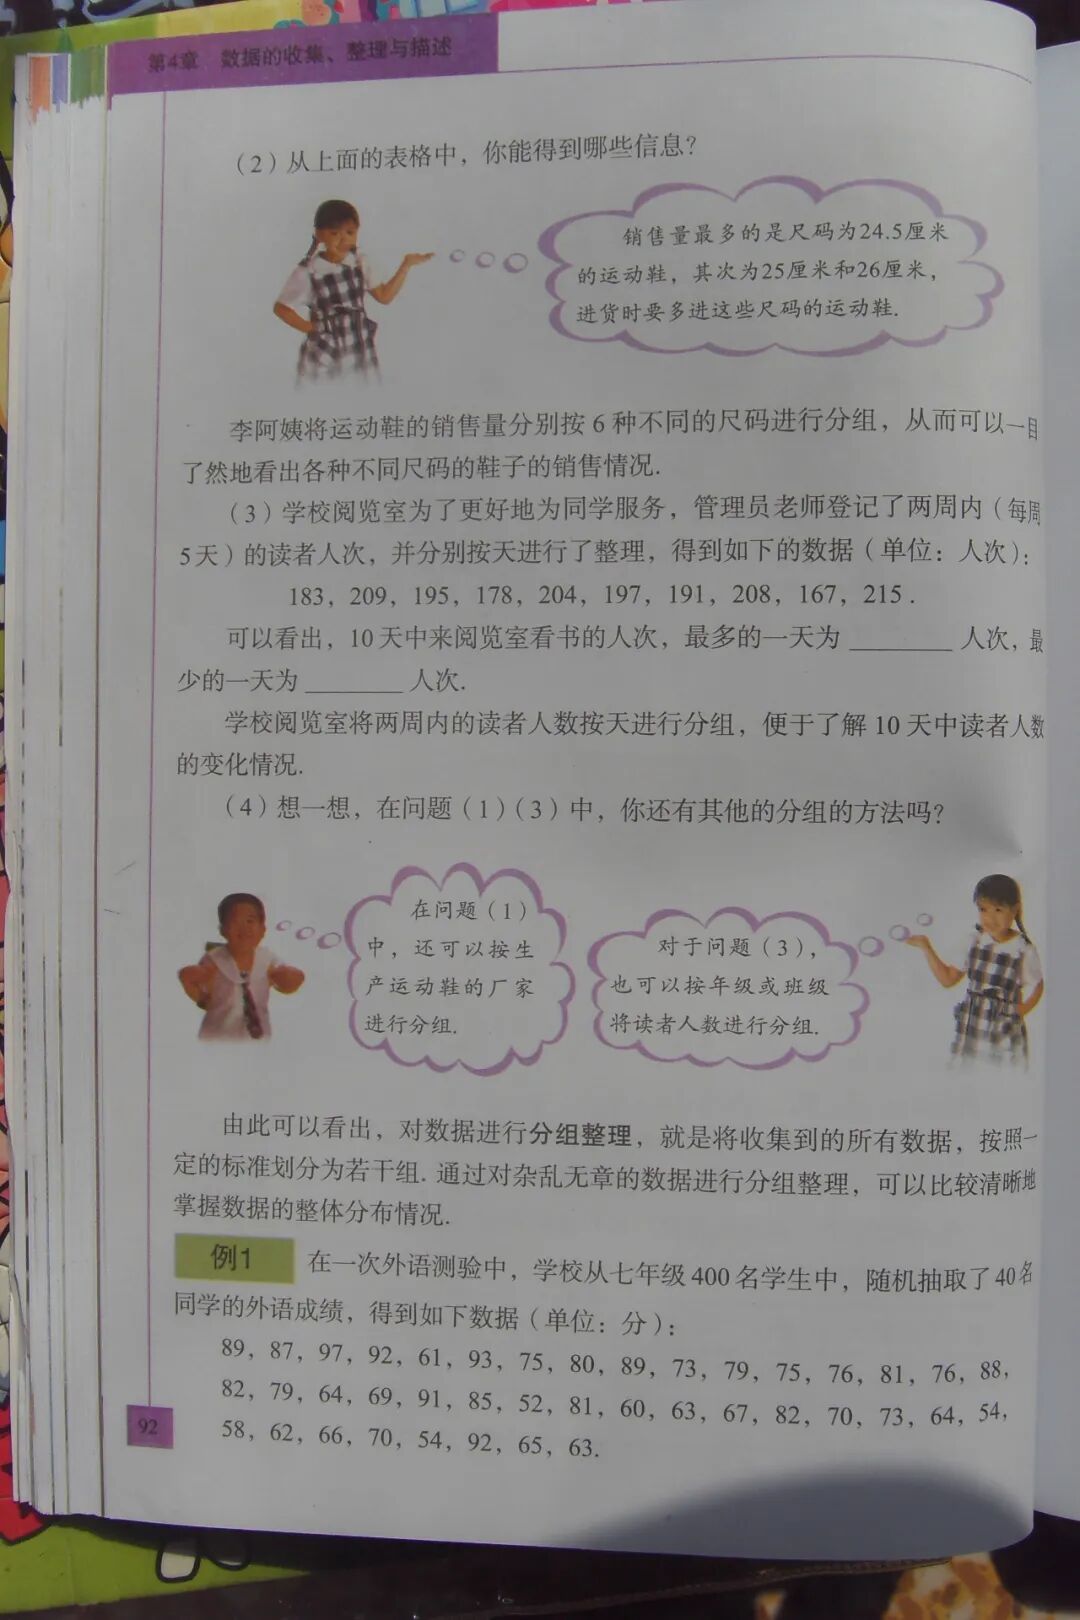 第4章 数据的收集、整理与描述
（2）从上面的表格中，你能得到哪些信息？
销售量最多的是尺码为24.5厘米
的运动鞋，其次为25厘米和26厘米，
进货时要多进这些尺码的运动鞋.
李阿姨将运动鞋的销售量分别按 6 种不同的尺码进行分组，从而可以一目
了然地看出各种不同尺码的鞋子的销售情况.
（3）学校阅览室为了更好地为同学服务，管理员老师登记了两周内（每周
5天）的读者人次，并分别按天进行了整理，得到如下的数据（单位：人次）：
183，209，195，178，204，197，191，208，167，215 .
可以看出，10 天中来阅览室看书的人次，最多的一天为 ________ 人次，最
少的一天为 ________ 人次.
学校阅览室将两周内的读者人数按天进行分组，便于了解 10 天中读者人数
的变化情况.
（4）想一想，在问题（1）（3）中，你还有其他的分组的方法吗？
在问题（1）
中，还可以按生
产运动鞋的厂家
进行分组.
对于问题（3），
也可以按年级或班级
将读者人数进行分组.
由此可以看出，对数据进行分组整理，就是将收集到的所有数据，按照一
定的标准划分为若干组. 通过对杂乱无章的数据进行分组整理，可以比较清晰地
掌握数据的整体分布情况.
例1 在一次外语测验中，学校从七年级 400 名学生中，随机抽取了 40 名
同学的外语成绩，得到如下数据（单位：分）：
89，87，97，92，61，93，75，80，89，73，79，75，76，81，76，88，
82，79，64，69，91，85，52，81，60，63，67，82，70，73，64，54，
58，62，66，70，54，92，65，63.
92